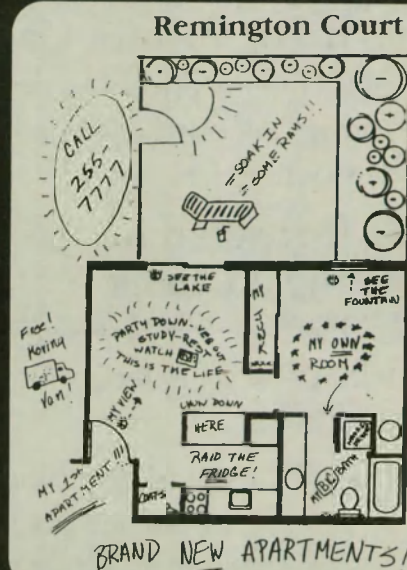 Remington Court
CALL
255-
7777
SOAK IN
SOME RAYS!!
SEE THE
LAKE
SEE
THE
FOUNTAIN
Free!
Moving
Van!
PARTY DOWN - VEG OUT
STUDY - REST
WATCH
THIS IS THE LIFE
MY OWN
ROOM
MY VIEW
CHOW DOWN
HERE
RAID THE
FRIDGE!
MY 1ST
APARTMENT!!!
COATS
BATH
BRAND NEW APARTMENTS